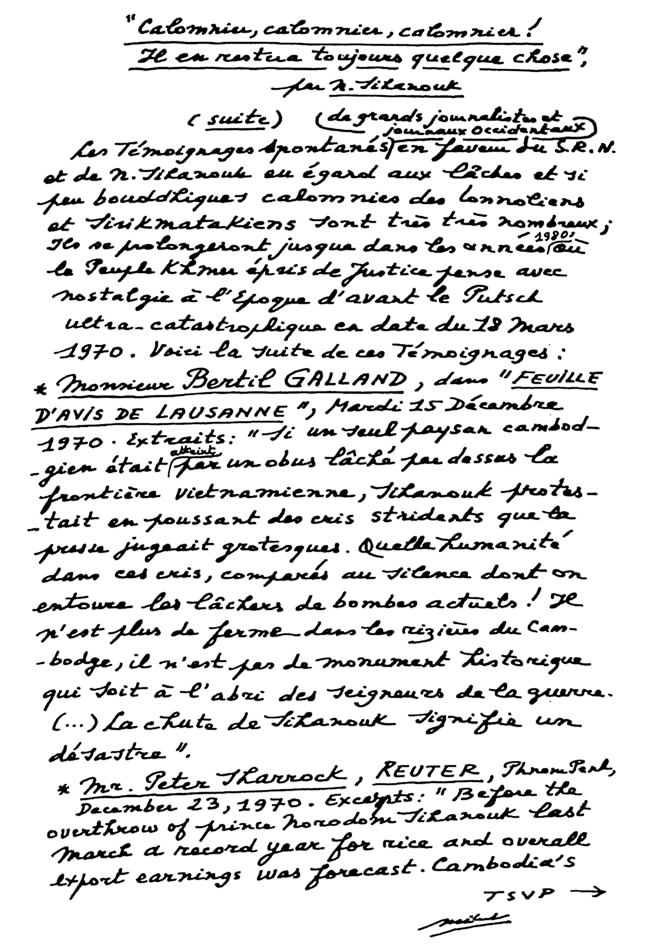 "Calomniez, calomniez, calomniez !
Il en restera toujours quelque chose",
par N. Sihanouk
(suite) (de grands journalistes et
journaux occidentaux)
Les Témoignages spontanés en faveur du S.R.N.
et de N. Sihanouk eu égard aux lâches et si
peu bouddhiques calomnies des lonnoliens
et Sirikmatakiens sont très très nombreux ;
Ils se prolongeront jusque dans les années 1980, où
le Peuple Khmer épris de Justice pense avec
nostalgie à l'Epoque d'avant le Putsch
ultra-catastrophique en date du 18 Mars
1970. Voici la suite de ces Témoignages :
* Monsieur Bertil GALLAND, dans "FEUILLE
D'AVIS DE LAUSANNE", Mardi 15 Décembre
1970. Extraits : "Si un seul paysan cambod-
-gien était atteint par un obus lâché par dessus la
frontière vietnamienne, Sihanouk protes-
-tait en poussant des cris stridents que la
presse jugeait grotesques. Quelle humanité
dans ces cris, comparés au silence dont on
entoure les lâchers de bombes actuels ! Il
n'est plus de ferme dans les rizières du Cam-
-bodge, il n'est pas de monument historique
qui soit à l'abri des seigneurs de la guerre.
(...) La chute de Sihanouk signifie un
désastre".
* Mr. Peter Sharrock, REUTER, Phnom Penh,
December 23, 1970. Excerpts : "Before the
overthrow of prince Norodom Sihanouk last
March a record year for rice and overall
export earnings was forecast. Cambodia's
TSVP →